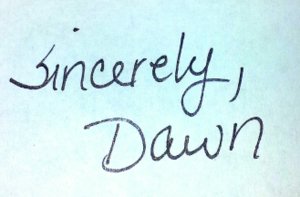 Sincerely,
Dawn